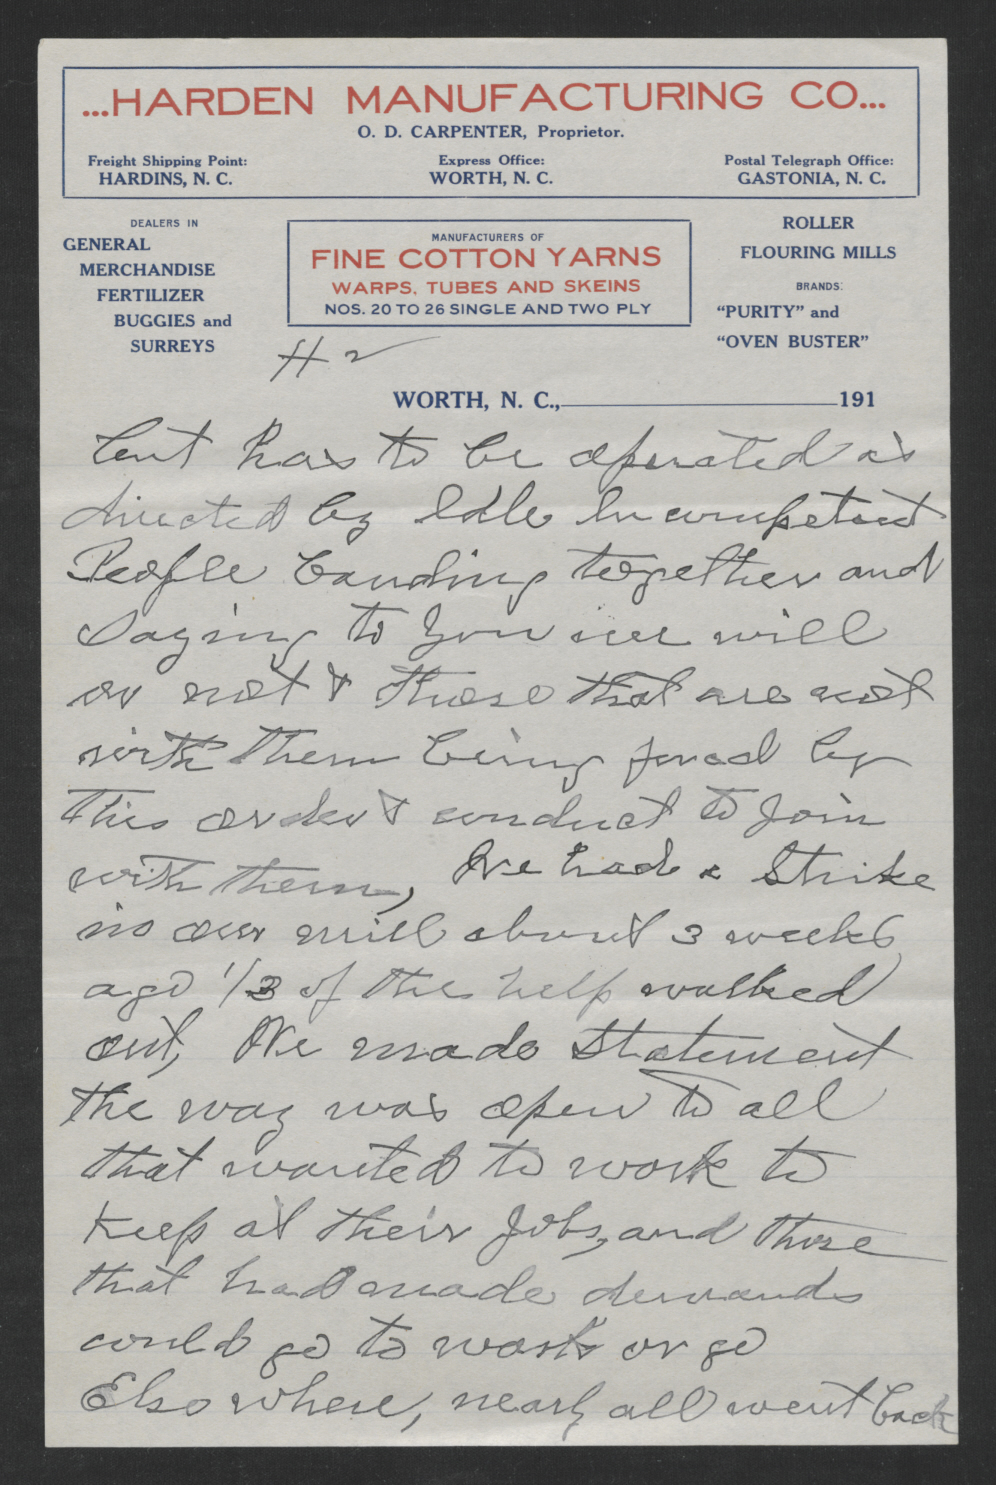 ...HARDEN MANUFACTURING CO...
O. D. CARPENTER, Proprietor.
Freight Shipping Point:
HARDINS, N. C.
Express Office:
WORTH, N. C.
Postal Telegraph Office:
GASTONIA, N. C.
DEALERS IN
GENERAL
MERCHANDISE
FERTILIZER
BUGGIES and
SURREYS
MANUFACTURERS OF
FINE COTTON YARNS
WARPS, TUBES AND SKEINS
NOS. 20 TO 26 SINGLE AND TWO PLY
ROLLER
FLOURING MILLS
BRANDS:
"PURITY" and
"OVEN BUSTER"
# 2
WORTH, N. C., 191
but has to be operated as
directed by Idle Incompetent
People banding together and
Saying to you we will
or not & those that are not
with them being forced by
this order & conduct to Join
with them, We had a Strike
in our mill about 3 weeks
ago 1/3 of the help walked
out, We made Statement
the way was open to all
that wanted to work to
Keep at their Jobs, and those
that had made demands
could go to work or go
Else where, nearly all went back